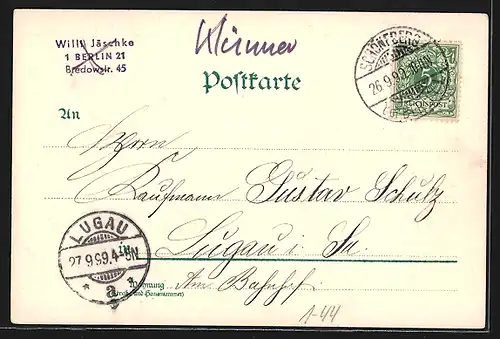 Willi Jäschke
1 BERLIN 21
Bredowstr. 45
Männer
Postkarte
SCHÖNEBERG
26.9.99
5
REICHSPOST
An
Herrn
Kaufmann Gustav Schulz
in Lugau i. Sa.
Wohnung Am Bahnhof
(Straße und Hausnummer)
LUGAU
27.9.99.4-5N
* a *
1-44